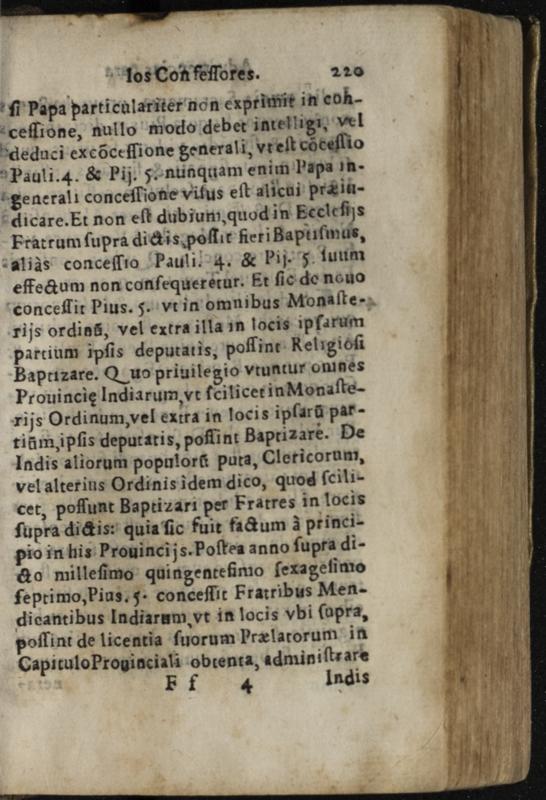 los Confeſſores. 220
ſi Papa particulariter non exprimit in con-
ceſſione, nullo modo debet intelligi, vel
deduci ex cõceſſione generali, vt eſt cõceſſio
Pauli. 4. & Pij. 5. nunquam enim Papa in-
generali conceſſione viſus eſt alicui præiu-
dicare. Et non eſt dubium, quod in Eccleſijs
Fratrum ſupra dictis, poſſit fieri Baptiſmus,
aliàs conceſſio Pauli. 4. & Pij. 5. ſuum
effectum non conſequeretur. Et ſic de nouo
conceſſit Pius. 5. vt in omnibus Monaſte-
rijs ordinũ, vel extra illa in locis ipſarum
partium ipſis deputatis, poſſint Religioſi
Baptizare. Quo priuilegio vtuntur omnes
Prouincię Indiarum, vt ſcilicet in Monaſte-
rijs Ordinum, vel extra in locis ipſarũ par-
tiũm, ipſis deputatis, poſſint Baptizare. De
Indis aliorum populorũ puta, Clericorum,
vel alterius Ordinis idem dico, quod ſcili-
cet, poſſunt Baptizari per Fratres in locis
ſupra dictis: quia ſic fuit factum à princi-
pio in his Prouincijs. Poſtea anno ſupra di-
cto milleſimo quingenteſimo ſexageſimo
ſeptimo, Pius. 5. conceſſit Fratribus Men-
dicantibus Indiarum, vt in locis vbi ſupra,
poſſint de licentia ſuorum Prælatorum in
Capitulo Prouinciali obtenta, adminiſtrare
F f 4 Indis